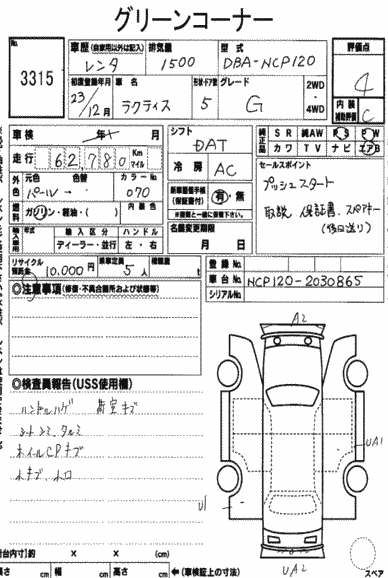 グリーンコーナー
No. 3315
車歴 (自家用以外は記入) レンタ
排気量 1500
型式 DBA-NCP120
評価点 4
初度登録年月 23/12月
車名 ラクティス
形状・ドア数 5
グレード G
2WD・4WD
内装補助評価 C
車検 年 月
シフト DAT
純正品 SR 純AW PS PW
カワ TV ナビ エアB
走行 62,780 Km マイル
冷房 AC
セールスポイント
プッシュスタート
取説 保証書 スペアキー
(後日送り)
外色 元色 パール 色替 カラーNo. 070
新車整備手帳(保証書付) 有・無
※図面と一緒に保管下さい
燃料 ガソリン・軽油・( ) 内装色
名義変更期限
月 日
輸入車用 年式 輸入区分 ハンドル
ディーラー・並行 左・右
リサイクル預託金 10,000円
乗車定員 5人
積載量 t
登録No.
車台No. NCP120-2030865
シリアルNo.
◎注意事項(修復・不具合箇所および状態等)
A2
◎検査員報告(USS使用欄)
ハンドルハゲ 荷室キズ
シートシミ、タルミ
ホイールCPキズ
小キズ、小凹
UA1
U1
UA2
台内寸)約 × × (cm)
長さ cm 幅 cm 高さ cm ←(車検証上の寸法)
スペア